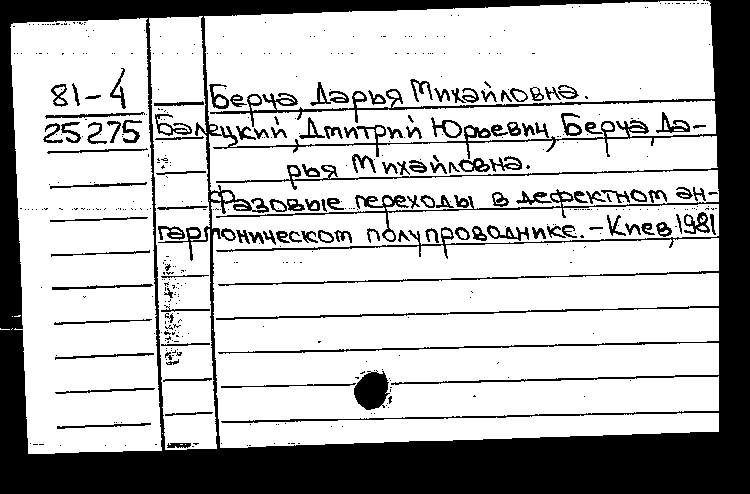 81-4
25275
Берча, Дарья Михайловна.
Балецкий, Дмитрий Юрьевич, Берча, Да-
рья Михайловна.
Фазовые переходы в дефектном ан-
гармоническом полупроводнике. - Киев, 1981